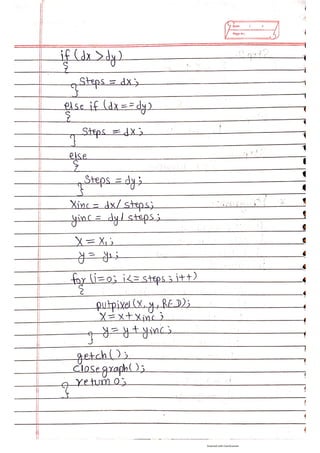 Date
Page No.
if (dx > dy)
{
Steps = dx;
}
else if (dx == dy)
{
Steps = dx;
}
else
{
Steps = dy;
}
Xinc = dx/ steps;
yinc = dy/ steps;
X = X1;
y = y1;
for (i=0; i<= steps; i++)
{
putpixel (x, y, RED);
X = x + xinc;
y = y + yinc;
}
getch();
closegraph();
return 0;
}